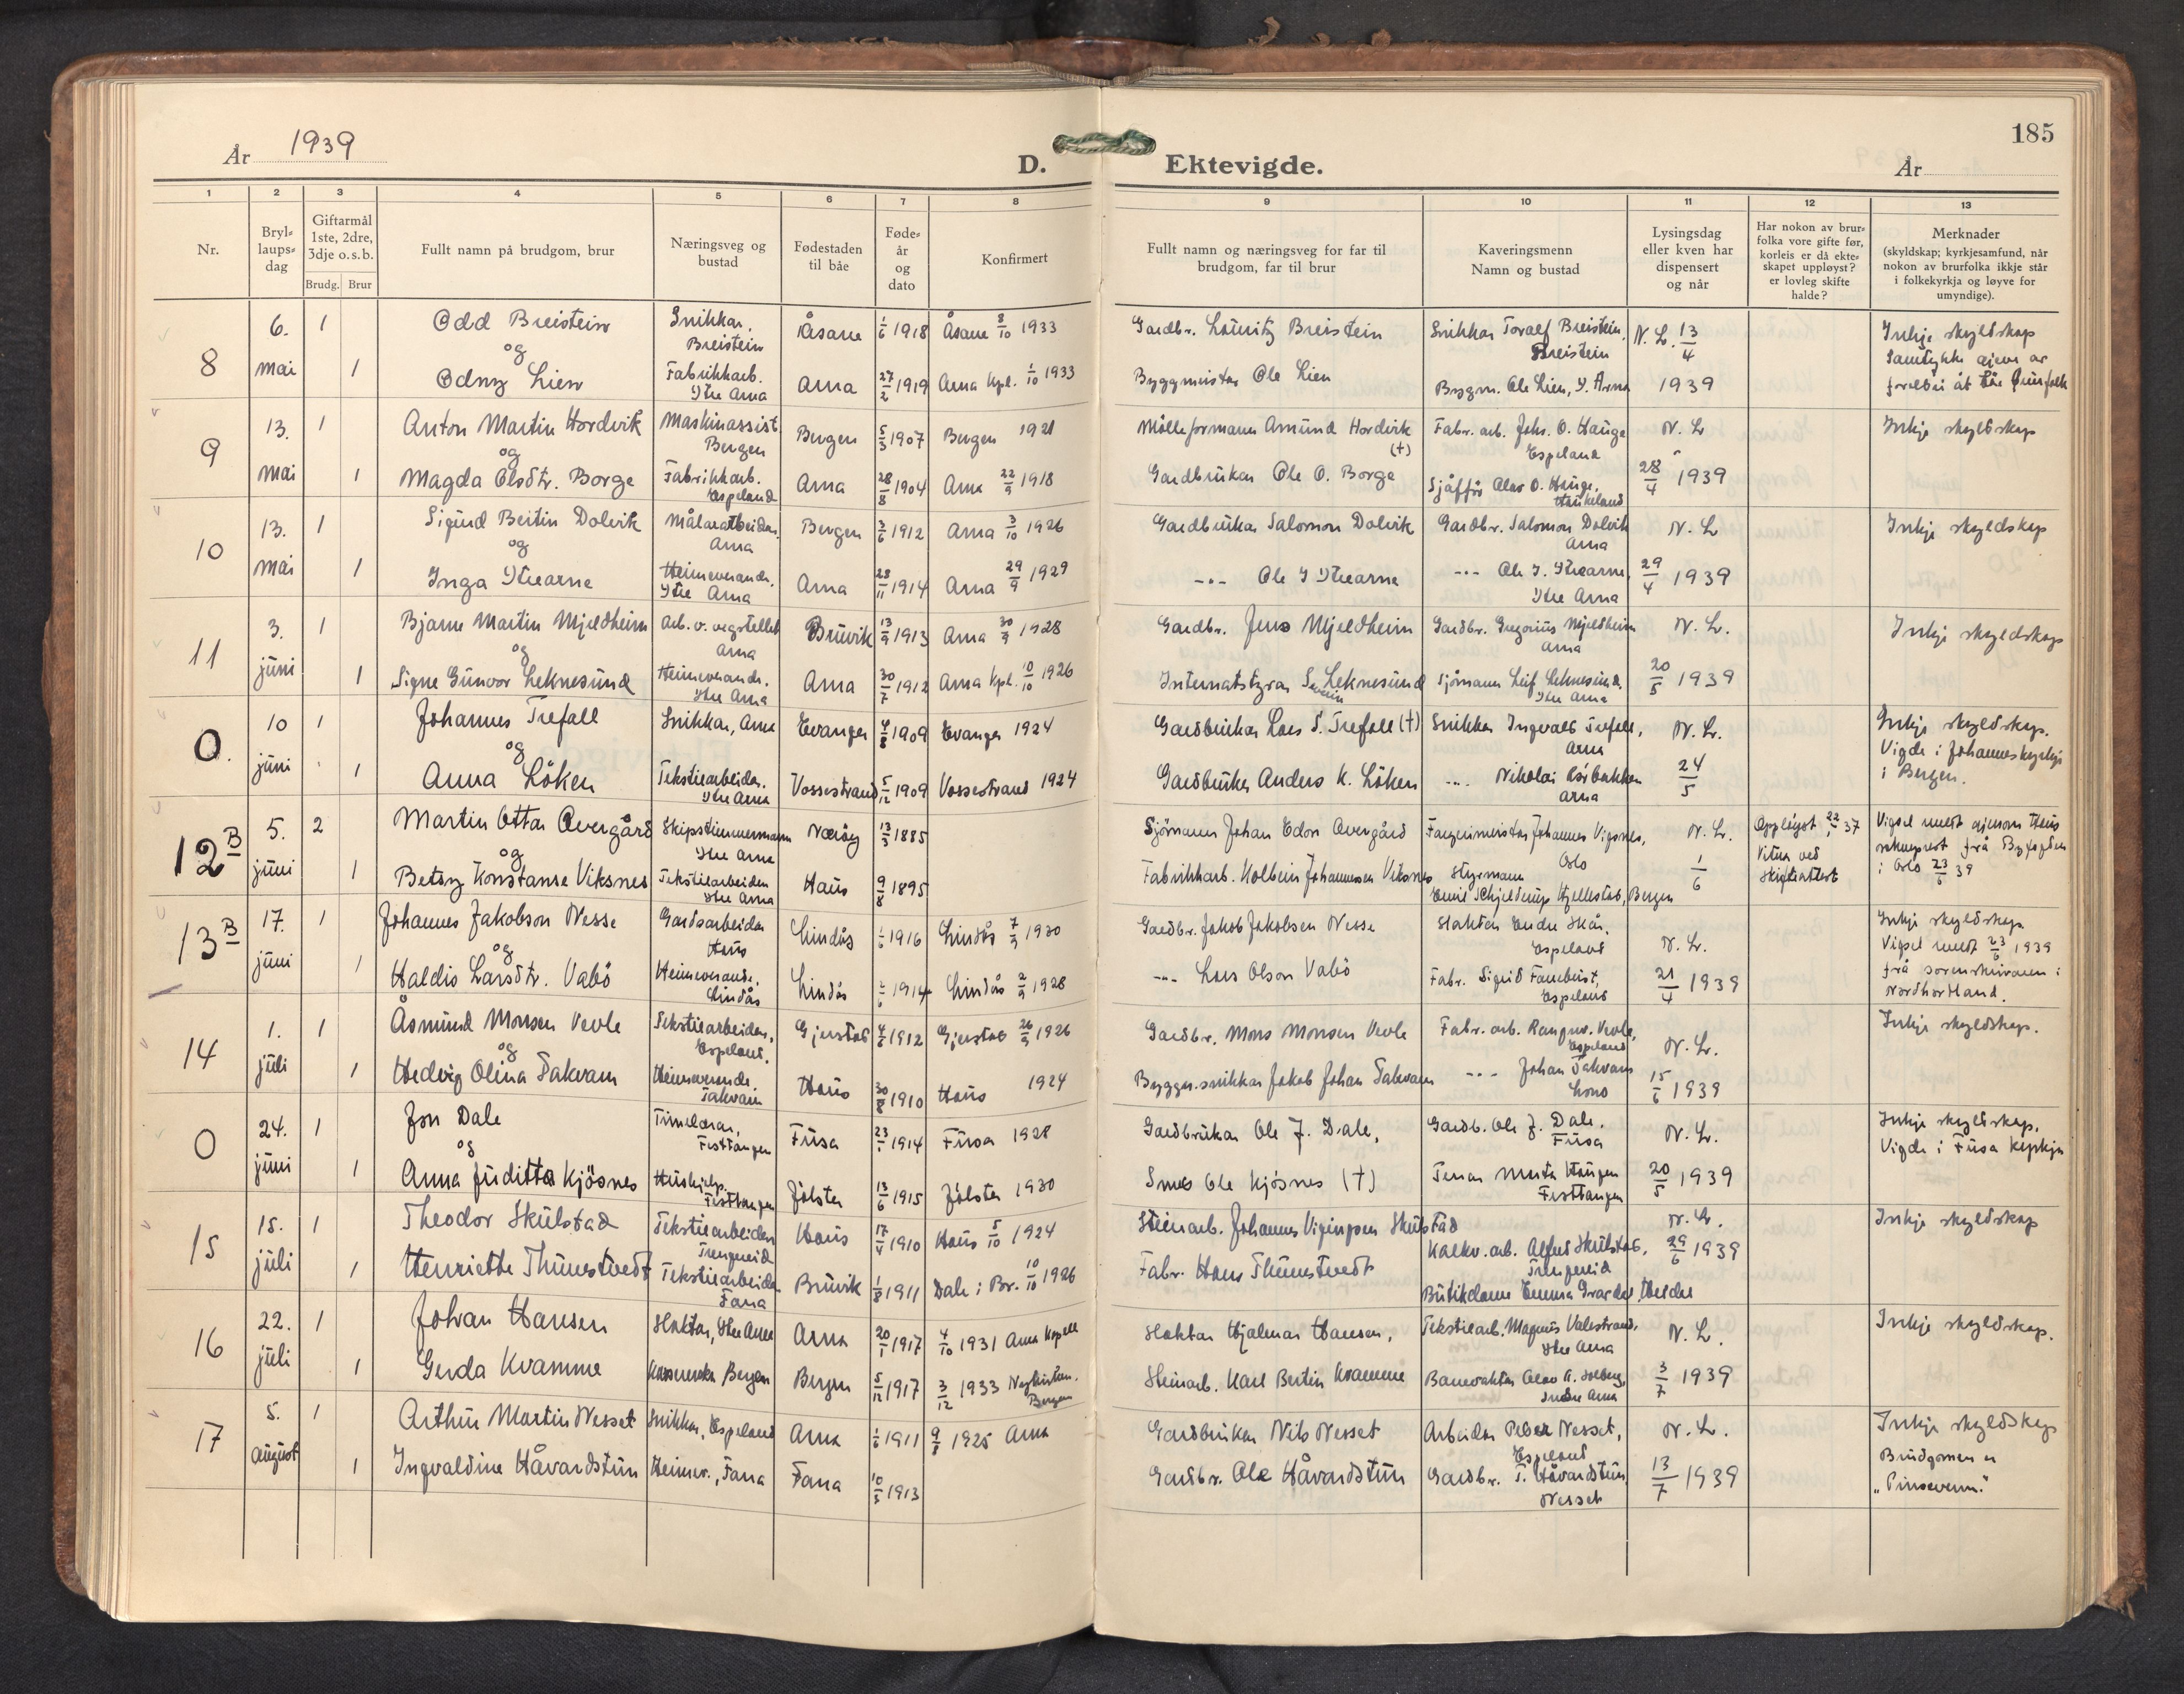 År 1939
D. Ektevigde.
185
År
1 2 3 4 5 6 7 8 9 10 11 12 13
Nr.
Bryl-laups-dag
Giftarmål 1ste, 2dre, 3dje o.s.b.
Brudg. Brur
Fullt namn på brudgom, brur
Næringsveg og bustad
Fødestaden til båe
Føde-år og dato
Konfirmert
Fullt namn og næringsveg for far til brudgom, far til brur
Kaveringsmenn Namn og bustad
Lysingsdag eller kven har dispensert og når
Har nokon av brur-folka vore gifte før, korleis er då ekte-skapet uppløyst? er lovleg skifte halde?
Merknader (skyldskap; kyrkjesamfund, når nokon av brurfolka ikkje står i folkekyrkja og løyve for umyndige).
8
6. mai 1 Odd Breistein Snikkar, Breistein Åsane 1/6 1918 Åsane 8/10 1933 Gardbr. Lauritz Breistein Snikkar Toralf Breistein, Breistein N. L. 13/4 Inkje skyldskap
og
1 Odny Lien Fabrikkarb. Ytre Arna Arna 27/2 1919 Arna kpl. 1/10 1933 Byggmeister Ole Lien Byggm. Ole Lien, Y. Arna 1939
9
13. mai 1 Anton Martin Hordvik Maskinassist. Bergen Bergen 5/3 1907 Bergen 1921 Mølleformann Amund Hordvik (†) Fabr. arb. Johs. O. Hauge Espeland N. L. Inkje skyldskap
og
1 Magda Olsdtr. Borge Fabrikkarb. Espeland Arna 28/8 1904 Arna 22/9 1918 Gardbrukar Ole O. Borge Sjåffør Olav O. Hauge, Haukeland 28/4 1939
10
13. mai 1 Sigurd Bertin Dolvik Målararbeidar. Arna Bergen 3/6 1912 Arna 3/10 1926 Gardbrukar Salomon Dolvik Gardbr. Salomon Dolvik Arna N. L. Inkje skyldskap
og
1 Inga Ytrearne Heimeverande. Ytre Arna Arna 28/11 1914 Arna 29/9 1929 -"- Ole J Ytrearne -"- Ole J. Ytrearne, Ytre Arna 29/4 1939
11
3. juni 1 Bjarne Martin Mjeldheim Arb. v. vegstellet Arna Bruvik 13/9 1913 Arna 30/9 1928 Gardbr. Jens Mjeldheim Gardbr. Gregorius Mjeldheim Arna N. L. Inkje skyldskap
og
1 Signe Gunvor Leknesund Heimeverande. Ytre Arna Arna 30/7 1912 Arna kpl. 10/10 1926 Internatstyrar Leknesund Sjømann Leif Leknesund, Ytre Arna 20/5 1939
0.
10 juni 1 Johannes Trefall Snikkar, Arna Evanger 4/8 1909 Evanger 1924 Gardbrukar Lars S. Trefall (†) Snikkar Ingvald Trefall, Arna N. L. Inkje skyldskap. Vigde i Johanneskyrkja i Bergen.
og
1 Anna Løken Tekstilarbeidar. Ytre Arna Vossestrand 5/12 1909 Vossestrand 1924 Gardbrukar Anders K. Løken -"- Nikolai Arna 24/5
12 B
5. juni 2 Martin Ottar Overgård Skipstimmermann Ytre Arna Nærøy 13/3 1885 Sjømann Johan Edor Overgård Fargerimeister Johannes Vigsnes, Oslo N. L. Oppløyst 22/ 37 Vitna ved Skifteattest
og
1 Betsy Konstanse Viksnes Tekstilarbeidar Ytre Arna Haus 9/8 1895 Fabrikkarb. Kolbein Johannesen Viksnes Styrmann Emil Schjelderup Hjellestad, Bergen 1/6 i Oslo 23/6 39
13 B
17. juni 1 Johannes Jakobson Nesse Gardsarbeidar Haus Lindås 1916 Lindås 7/9 1930 Gardbr. Jakob Jakobsen Nesse Slaktar Endre Skår, Espeland N. L. Inkje skyldskap. Vigsel meldt 23/6 1939 frå sorenskrivaren i Nordhordland.
og
1 Haldis Larsdtr. Vabø Heimeverande. Lindås Lindås 1914 Lindås 2/9 1928 -"- Lars Olson Vabø Fabr. Sigrid Espeland 21/4 1939
14
1. juli 1 Åsmund Monsen Vevle Tekstilarbeidar, Espeland. Gjerstad 4/6 1912 Gjerstad 26/9 1926 Gardbr. Mons Monsen Vevle Fabr. arb. Rangnv. Vevle, Espeland N. L. Inkje skyldskap.
og
1 Hedvig Olina Takvam Heimeverande. Takvam Haus 30/8 1910 Haus 1924 Byggn.snikkar Jakob Johan Takvam -"- Johan Takvam Lono 15/6 1939
0
24. juni 1 Jon Dale Timelærar, Festtangen Fusa 23/1 1914 Fusa 1928 Gardbrukar Ole J. Dale, Gardb. Ole J. Dale. Fusa N. L. Inkje skyldskap. Vigde i Fusa kyrkja
og
1 Anna Juditta Kjösnes Hushjelp. Festtangen Jølster 13/6 1915 Jølster 1930 Smed Ole Kjösnes (†) Marta Haugen Festtangen 20/5 1939
15
15. juli 1 Theodor Skulstad Tekstilarbeidar Trengereid Haus 17/4 1910 Haus 5/10 1924 Steinarb. Johannes Skulstad Kalkv. arb. Alfred Skulstad, Trengereid N. L. 29/6 1939 Inkje skyldskap
1 Henriette Thunestvedt Tekstilarbeidar Fana Bruvik 1/8 1911 Dale i Br. 10/10 1926 Fabr. Hans Thunestvedt Butikdame Emma
16
22. juli 1 Johan Hansen Slaktar, Ytre Arna Arna 20/1 1917 4/10 1931 Arna kapell Slaktar Hjalmar Hansen, Tekstilarb. Magnus Valestrand, Ytre Arna N. L. Inkje skyldskap.
1 Gerda Kvamme Bergen Bergen 5/12 1917 3/12 1933 Nykirken. Bergen Steinarb. Karl Bertin Kvamme Banevaktar Olav A. Solberg, Indre Arna 3/7 1939
17
5. august 1 Arthur Martin Nesset Snikkar, Espeland Arna 1/6 1911 1925 Arna Gardbrukar Nils Nesset Arbeidar Peder Nesset, Espeland N. L. Inkje skyldskap Brudgomen er "Pinsevenn."
1 Ingvaldine Håvardstun Heimev., Fana Fana 10/5 1913 Gardbr. Ole Håvardstun Gardbr. T. Håvardstun, Nesset 13/7 1939